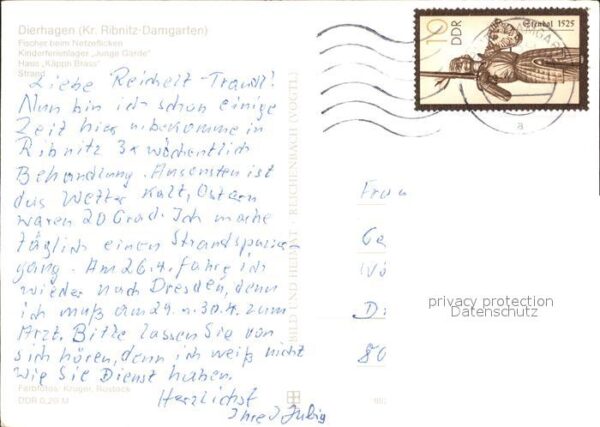 Dierhagen (Kr. Ribnitz-Damgarten)
Fischer beim Netzeflicken
Kinderferienlager „Junge Garde"
Haus „Käppn Brass"
Strand
Liebe Reichelt-Traudl!
Nun bin ich schon einige
Zeit hier u. bekomme in
Ribnitz 3x wöchentlich
Behandlung. Ansonsten ist
das Wetter kalt, Ostern
waren 20 Grad. Ich mache
täglich einen Strandspazier-
gang. Am 26.4. fahre ich
wieder nach Dresden, denn
ich muß am 29. u. 30.4. zum
Arzt. Bitte lassen Sie von
sich hören, denn ich weiß nicht
wie Sie Dienst haben.
Herzlichst
Ihre
Farbfotos: Krüger, Rostock
DDR 0,20 M
BILD UND HEIMAT · REICHENBACH (VOGTL)
10
DDR
Stendal 1525
a
Frau
D
privacy protection
Datenschutz
80